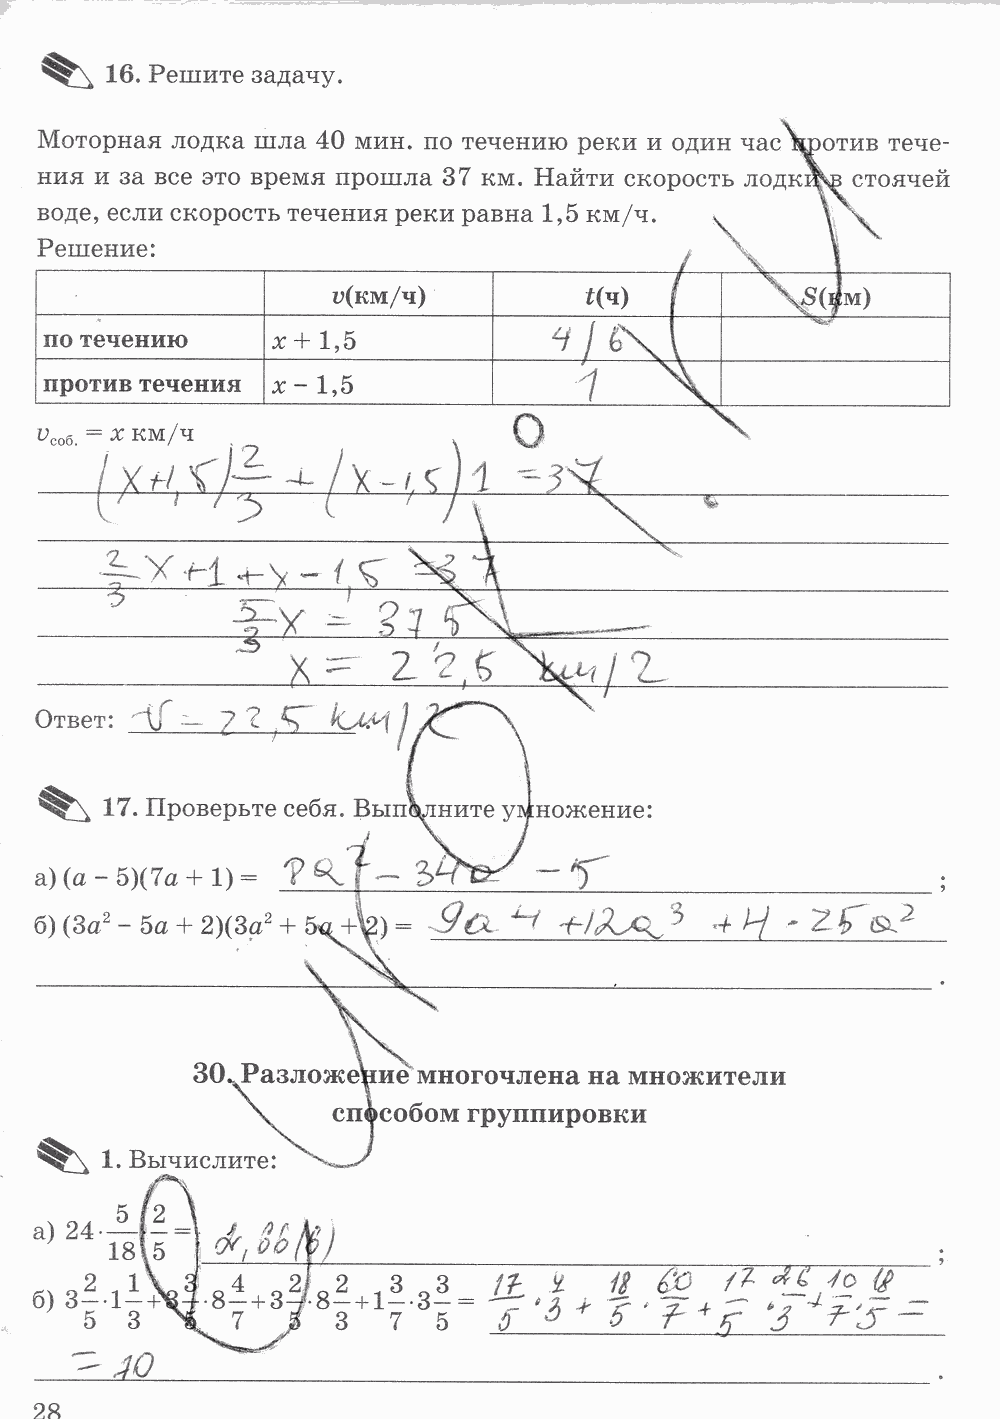 16. Решите задачу.
Моторная лодка шла 40 мин. по течению реки и один час против тече-
ния и за все это время прошла 37 км. Найти скорость лодки в стоячей
воде, если скорость течения реки равна 1,5 км/ч.
Решение:
v(км/ч) t(ч) S(км)
по течению x + 1,5 4/6
против течения x − 1,5 1
vсоб. = x км/ч
(x+1,5) 2/3 + (x-1,5) 1 = 37
2/3 x + 1 + x - 1,5 = 37
5/3 x = 37,5
x = 22,5 км/ч
Ответ: v = 22,5 км/ч.
17. Проверьте себя. Выполните умножение:
а) (a − 5)(7a + 1) = 7a² - 34a - 5;
б) (3a² − 5a + 2)(3a² + 5a + 2) = 9a⁴ + 12a³ + 4 - 25a²
.
30. Разложение многочлена на множители
способом группировки
1. Вычислите:
а) 24 · 5/18 · 2/5 = 2,66(6);
б) 3 2/5 · 1 1/3 + 3 3/5 · 8 4/7 + 3 2/5 · 8 2/3 + 1 3/7 · 3 3/5 = 17/5 · 4/3 + 18/5 · 60/7 + 17/5 · 26/3 + 10/7 · 18/5 =
= 70.
28